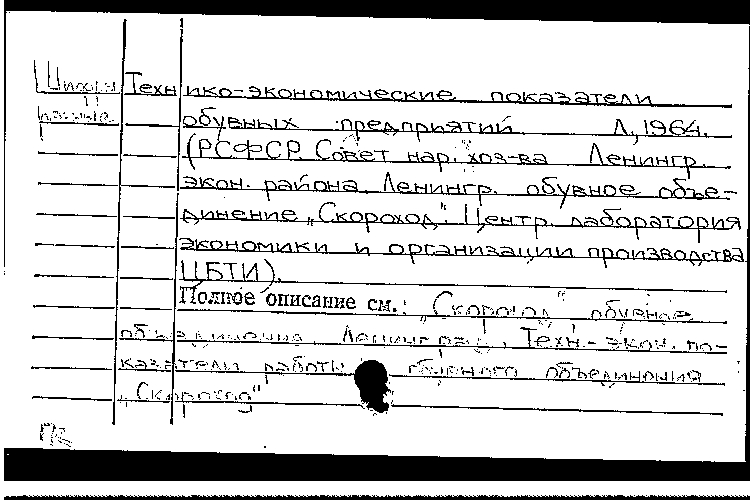 Технико-экономические показатели
обувных предприятий Л., 1964.
(РСФСР. Совет нар. хоз-ва Ленингр.
экон. района. Ленингр. обувное объе-
динение „Скороход". Центр. лаборатория
экономики и организации производства
ЦБТИ).
Полное описание см.: „Скороход" обувное
объединение, Ленинград. Техн.-экон. по-
казатели работы обувного объединения
„Скороход"